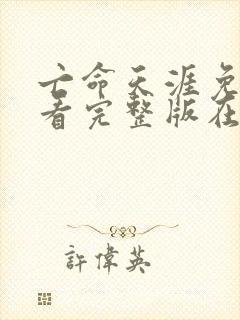 亡命天涯免
看完整版在
許偉英